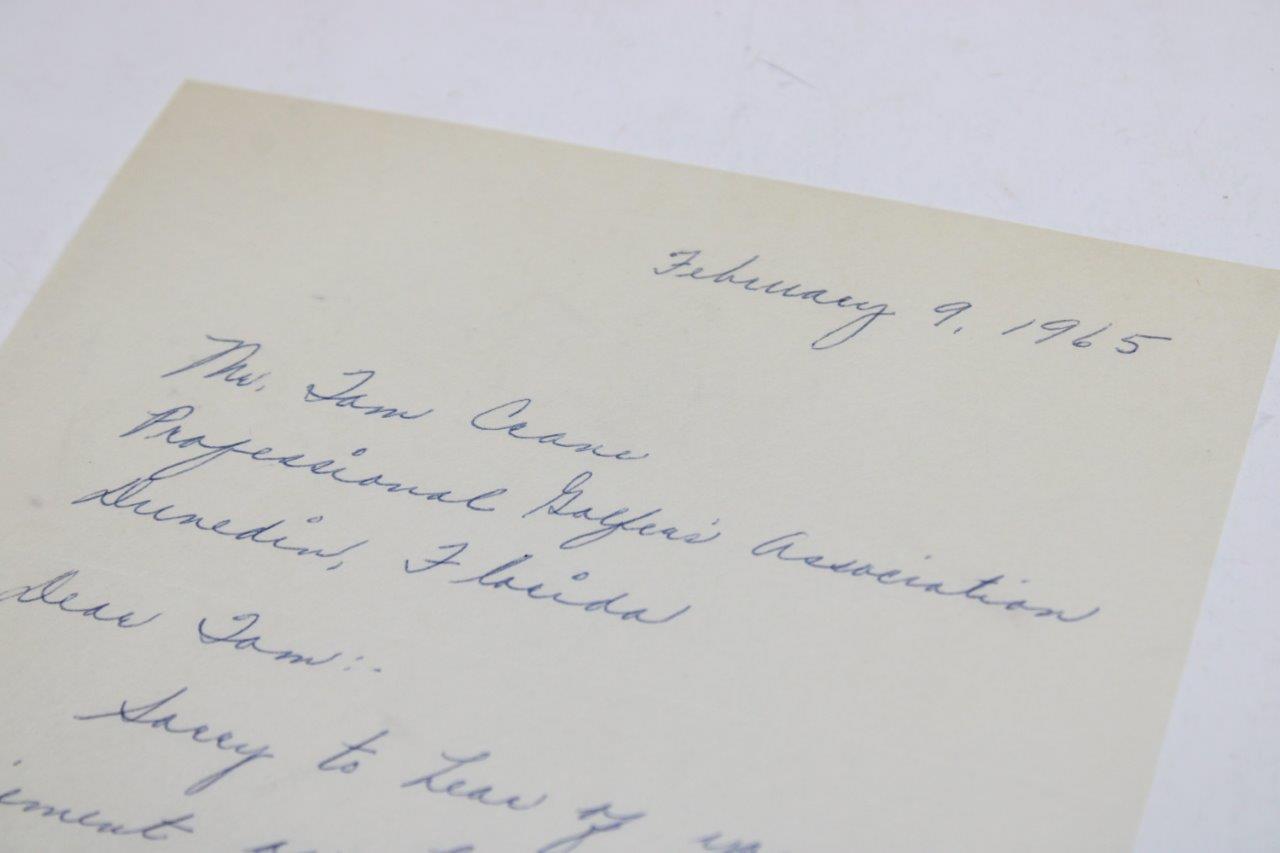 February 9, 1965
Mr. Tom Crane
Professional Golfers' Association
Dunedin, Florida
Dear Tom:.
Sorry to hear of